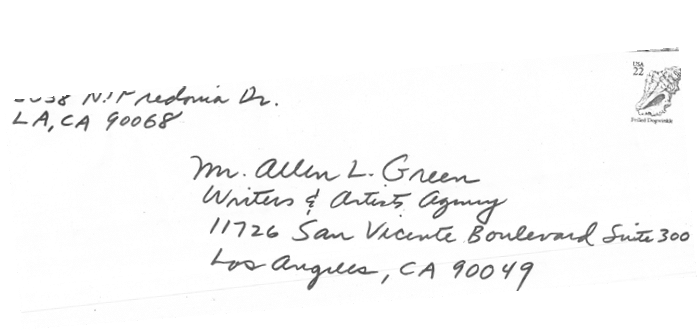 N. Fredonia Dr.
LA, CA 90068
USA
22
Frilled Dogwinkle
Mr. Allen L. Green
Writers & Artists Agency
11726 San Vicente Boulevard Suite 300
Los Angeles, CA 90049